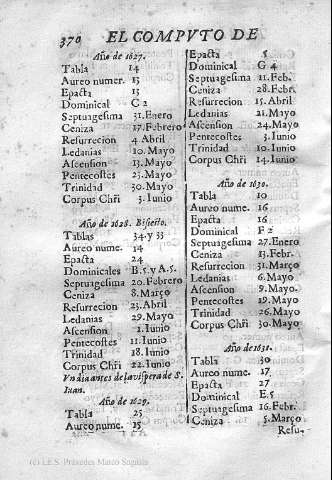 370 EL COMPVTO DE
Año de 1627.
Tabla 14
Aureo numer. 13
Epacta 13
Dominical C 2
Septuagesima 31. Enero
Ceniza 17. Febrero
Resurrecion 4 Abril
Ledanias 10. Mayo
Ascension 13. Mayo
Pentecostes 23. Mayo
Trinidad 30. Mayo
Corpus Chr̃i 3. Iunio
Año de 1628. Bisiesto.
Tablas 34. y 33
Aureo nume. 14
Epacta 24
Dominicales B. 5. y A. 5.
Septuagesima 20. Febrero
Ceniza 8. Março
Resurrecion 23. Abril
Ledanias 29. Mayo
Ascension 1. Iunio
Pentecostes 11. Iunio
Trinidad 18. Iunio
Corpus Chr̃i 22. Iunio
Vn dia antes de la vispera de S.
Iuan.
Año de 1629.
Tabla 25
Aureo nume. 15
Epacta 5
Dominical G 4
Septuagesima 11. Feb.
Ceniza 28. Febr.
Resurrecion 15. Abril
Ledanias 21. Mayo
Ascension 24. Mayo
Pentecostes 3. Iunio
Trinidad 10. Iunio
Corpus Chr̃i 14. Iunio
Año de 1630.
Tabla 10
Aureo nume. 16
Epacta 16
Dominical F 2
Septuagesima 27. Enero
Ceniza 13. Febr.
Resurrecion 31. Março
Ledanias 6. Mayo
Ascension 9. Mayo
Pentecostes 19. Mayo
Trinidad 26. Mayo
Corpus Chr̃i 30. Mayo
Año de 1631.
Tabla 30
Aureo nume. 17
Epacta 27
Dominical E. 5
Septuagesima 16. Febr.
Ceniza 5. Março
Resu-
(c) I.E.S. Práxedes Mateo Sagasta